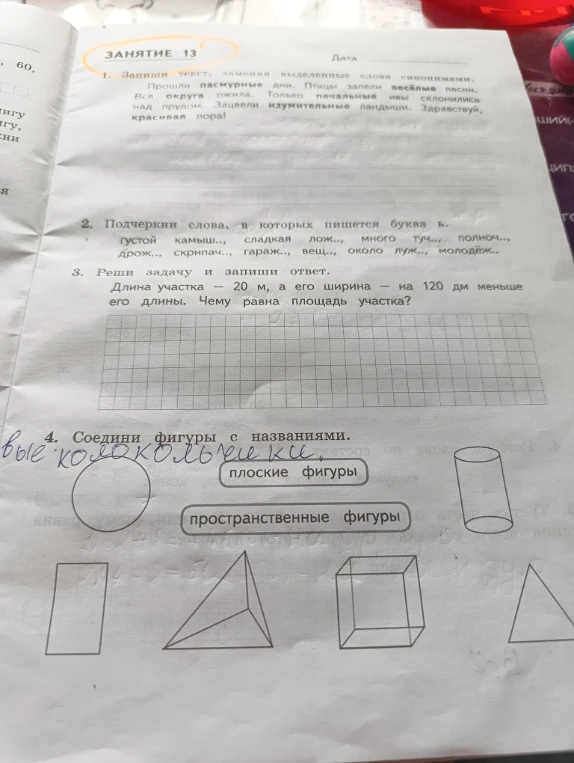 60,
ЗАНЯТИЕ 13
Дата
1. Запиши текст, заменяя выделенные слова синонимами.
Прошли пасмурные дни. Птицы запели весёлые песни.
Вся округа ожила. Только печальные ивы склонились
над прудом. Зацвели изумительные ландыши. Здравствуй,
красивая пора!
2. Подчеркни слова, в которых пишется буква ь.
густой камыш.., сладкая лож.., много туч.., полноч..,
дрож.., скрипач.., гараж.., вещ.., около луж.., молодёж..
3. Реши задачу и запиши ответ.
Длина участка — 20 м, а его ширина — на 120 дм меньше
его длины. Чему равна площадь участка?
4. Соедини фигуры с названиями.
вые колокольчики.
плоские фигуры
пространственные фигуры